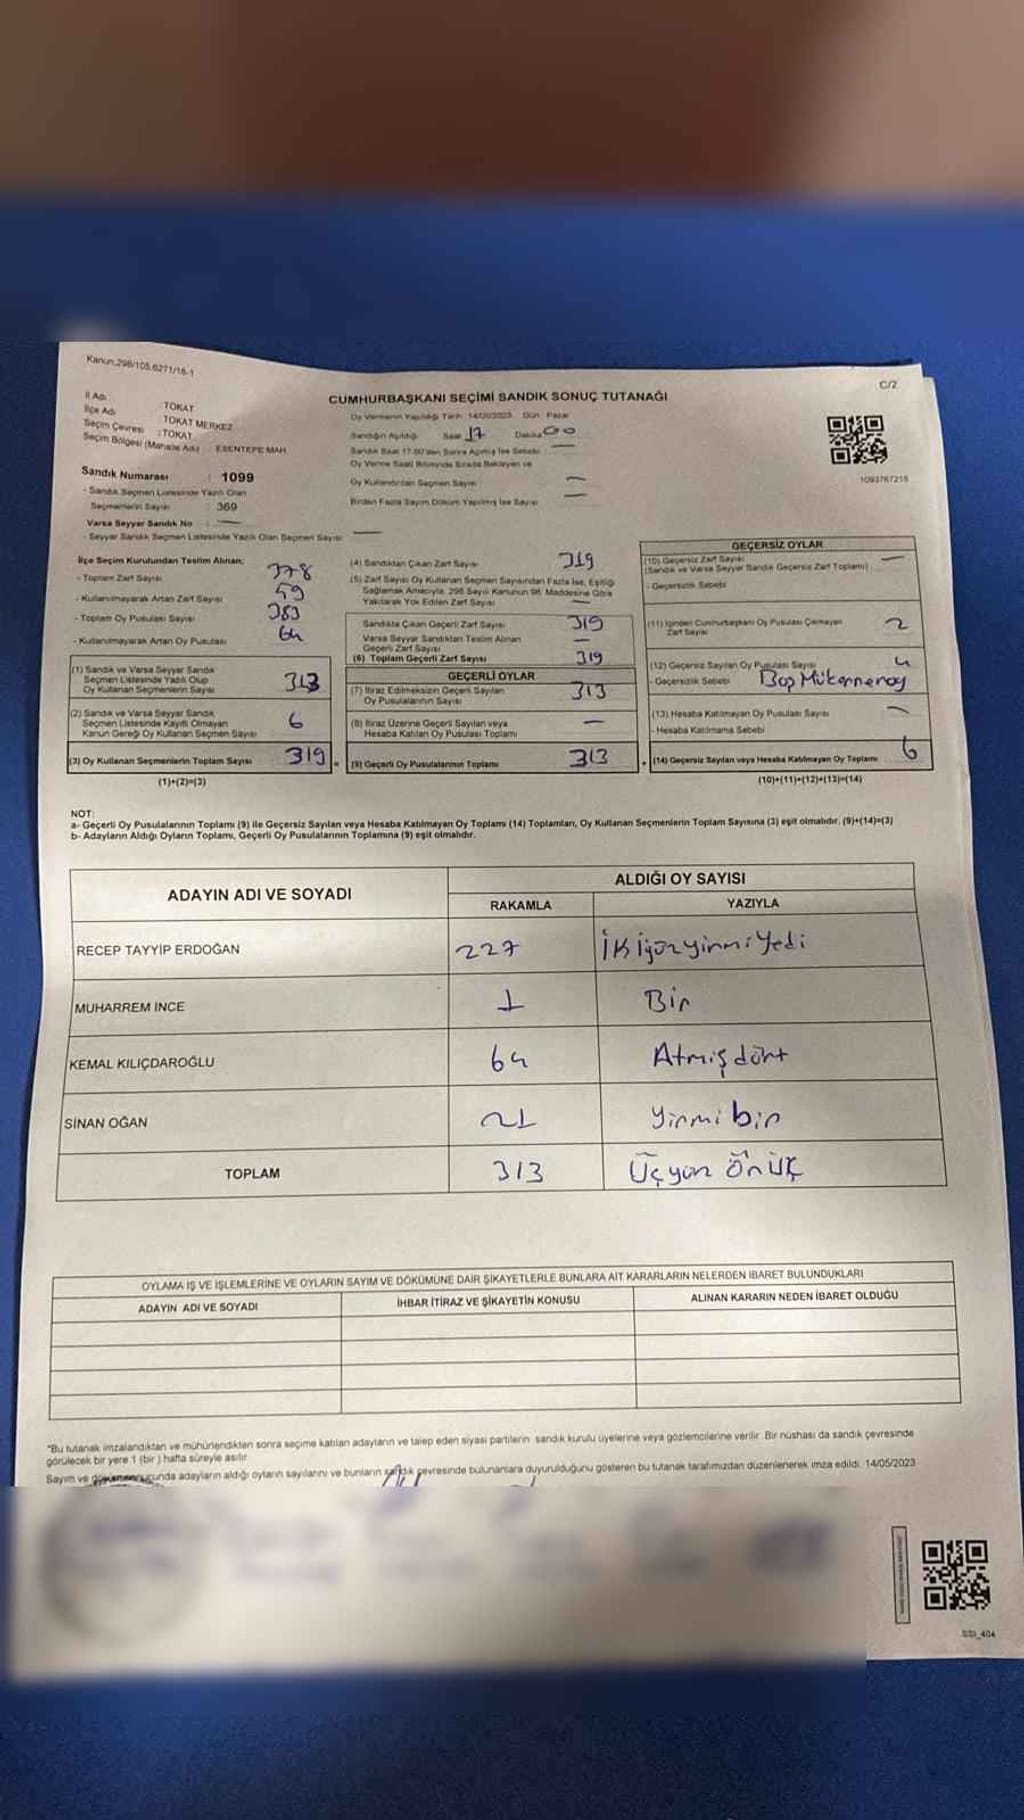 Kanun:298/105,6271/16-1
C/2
CUMHURBAŞKANI SEÇİMİ SANDIK SONUÇ TUTANAĞI
İl Adı : TOKAT
İlçe Adı : TOKAT MERKEZ
Seçim Çevresi : TOKAT
Seçim Bölgesi (Mahalle Adı) : ESENTEPE MAH
Sandık Numarası : 1099
- Sandık Seçmen Listesinde Yazılı Olan
Seçmenlerin Sayısı : 369
Varsa Seyyar Sandık No : —
- Seyyar Sandık Seçmen Listesinde Yazılı Olan Seçmen Sayısı: —
Oy Vermenin Yapıldığı Tarih: 14/05/2023 Gün: Pazar
Sandığın Açıldığı Saat 17 Dakika 00
Sandık Saat 17.00'den Sonra Açılmış İse Sebebi : —
Oy Verme Saati Bitiminde Sırada Bekleyen ve
Oy Kullandırılan Seçmen Sayısı : —
Birden Fazla Sayım Döküm Yapılmış İse Sayısı : —
1093767215
İlçe Seçim Kurulundan Teslim Alınan;
- Toplam Zarf Sayısı 378
- Kullanılmayarak Artan Zarf Sayısı 59
- Toplam Oy Pusulası Sayısı 383
- Kullanılmayarak Artan Oy Pusulası 64
(1) Sandık ve Varsa Seyyar Sandık
Seçmen Listesinde Yazılı Olup
Oy Kullanan Seçmenlerin Sayısı 313
(2) Sandık ve Varsa Seyyar Sandık
Seçmen Listesinde Kayıtlı Olmayan
Kanun Gereği Oy Kullanan Seçmen Sayısı 6
(3) Oy Kullanan Seçmenlerin Toplam Sayısı 319
(1)+(2)=(3)
(4) Sandıktan Çıkan Zarf Sayısı 319
(5) Zarf Sayısı Oy Kullanan Seçmen Sayısından Fazla İse, Eşitliği
Sağlamak Amacıyla, 298 Sayılı Kanunun 98. Maddesine Göre
Yakılarak Yok Edilen Zarf Sayısı —
Sandıkta Çıkan Geçerli Zarf Sayısı 319
Varsa Seyyar Sandıktan Teslim Alınan
Geçerli Zarf Sayısı —
(6) Toplam Geçerli Zarf Sayısı 319
GEÇERLİ OYLAR
(7) İtiraz Edilmeksizin Geçerli Sayılan
Oy Pusulalarının Sayısı 313
(8) İtiraz Üzerine Geçerli Sayılan veya
Hesaba Katılan Oy Pusulası Toplamı —
= (9) Geçerli Oy Pusulalarının Toplamı 313
GEÇERSİZ OYLAR
(10) Geçersiz Zarf Sayısı —
(Sandık ve Varsa Seyyar Sandık Geçersiz Zarf Toplamı)
- Geçersizlik Sebebi
(11) İçinden Cumhurbaşkanı Oy Pusulası Çıkmayan
Zarf Sayısı 2
(12) Geçersiz Sayılan Oy Pusulası Sayısı 4
- Geçersizlik Sebebi
(13) Hesaba Katılmayan Oy Pusulası Sayısı —
- Hesaba Katılmama Sebebi
+ (14) Geçersiz Sayılan veya Hesaba Katılmayan Oy Toplamı 6
(10)+(11)+(12)+(13)=(14)
NOT:
a- Geçerli Oy Pusulalarının Toplamı (9) ile Geçersiz Sayılan veya Hesaba Katılmayan Oy Toplamı (14) Toplamları, Oy Kullanan Seçmenlerin Toplam Sayısına (3) eşit olmalıdır. (9)+(14)=(3)
b- Adayların Aldığı Oyların Toplamı, Geçerli Oy Pusulalarının Toplamına (9) eşit olmalıdır.
ADAYIN ADI VE SOYADI ALDIĞI OY SAYISI
RAKAMLA YAZIYLA
RECEP TAYYİP ERDOĞAN 227 İkiyüzyirmiyedi
MUHARREM İNCE 1 Bir
KEMAL KILIÇDAROĞLU 64 Atmışdört
SİNAN OĞAN 21 yirmibir
TOPLAM 313 Üçyüz Önüç
OYLAMA İŞ VE İŞLEMLERİNE VE OYLARIN SAYIM VE DÖKÜMÜNE DAİR ŞİKAYETLERLE BUNLARA AİT KARARLARIN NELERDEN İBARET BULUNDUKLARI
ADAYIN ADI VE SOYADI İHBAR İTİRAZ VE ŞİKAYETİN KONUSU ALINAN KARARIN NEDEN İBARET OLDUĞU
"Bu tutanak imzalandıktan ve mühürlendikten sonra seçime katılan adayların ve talep eden siyasi partilerin sandık kurulu üyelerine veya gözlemcilerine verilir. Bir nüshası da sandık çevresinde
görülecek bir yere 1 (bir) hafta süreyle asılır.
Sayım ve adayların aldığı oyların sayılarını ve bunların sandık çevresinde bulunanlara duyurulduğunu gösteren bu tutanak tarafımızdan düzenlenerek imza edildi. 14/05/2023
SSI_404